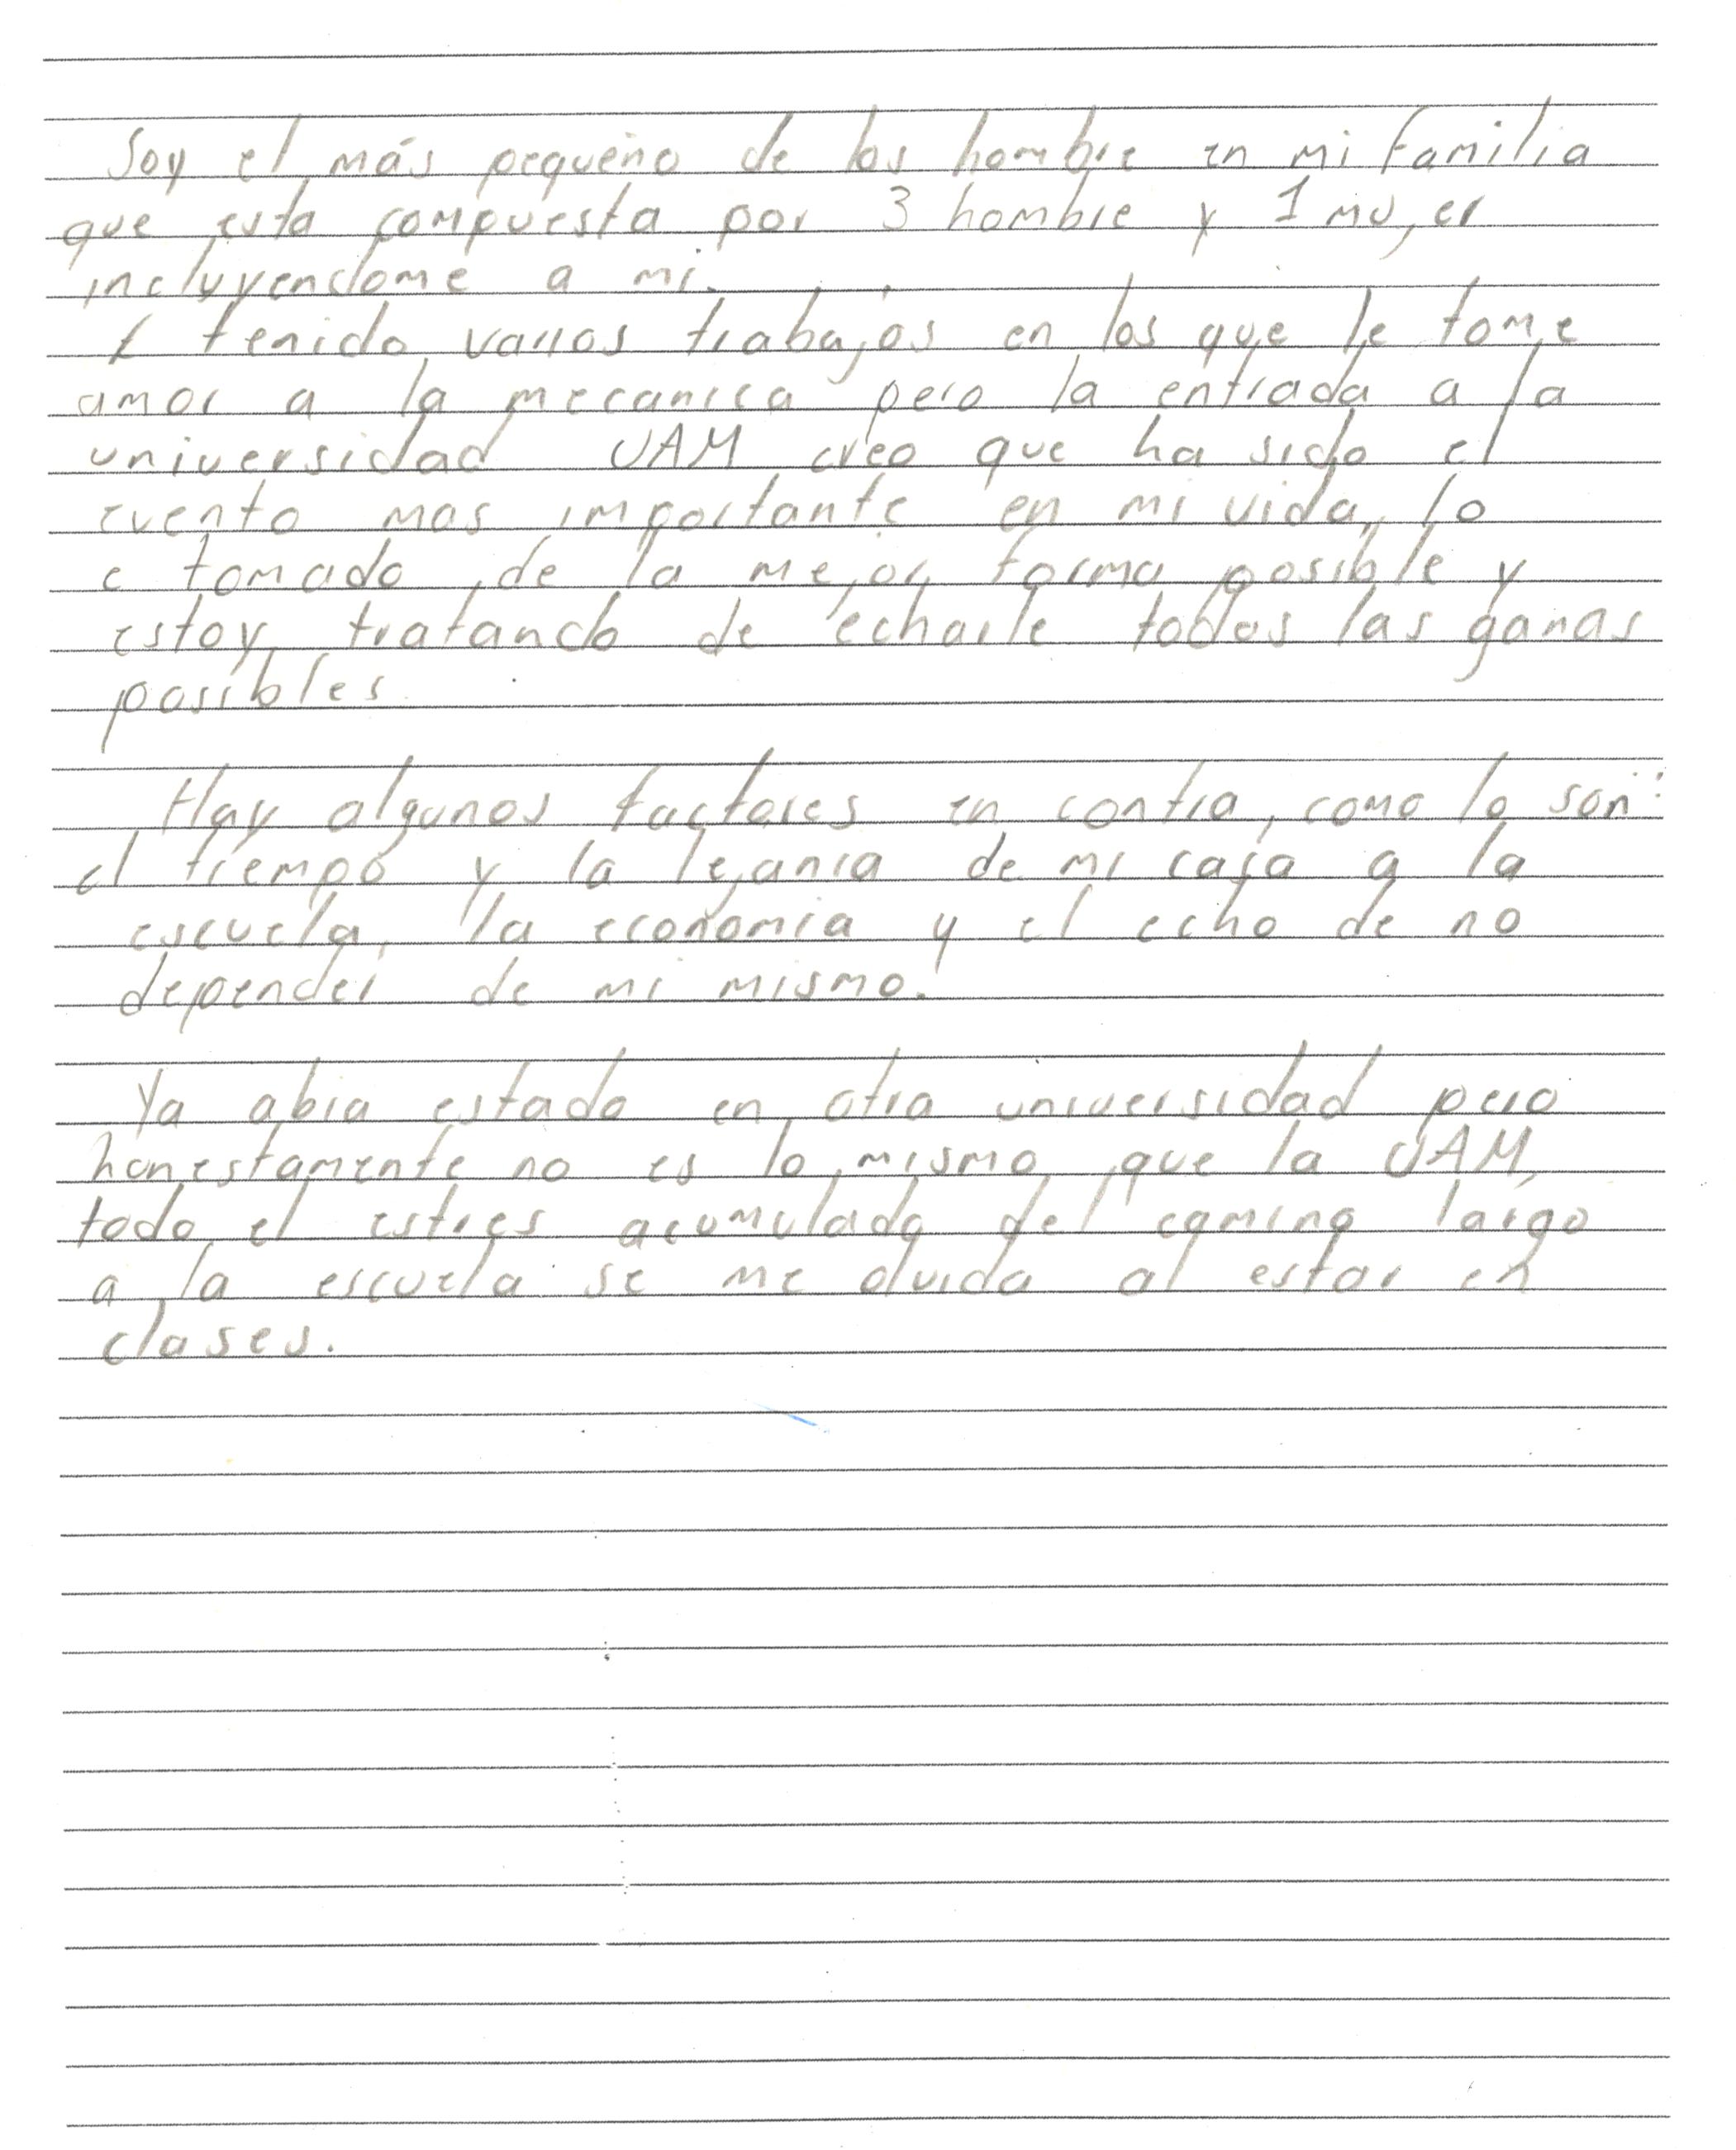 Soy el más pequeño de los hombre en mi familia
que esta compuesta por 3 hombre y 1 mujer
incluyendome a mi.
E tenido varios trabajos en los que le tome
amor a la mecanica pero la entrada a la
universidad UAM creo que ha sido el
evento mas importante en mi vida, lo
e tomado de la mejor forma posible y
estoy tratando de echarle todas las ganas
posibles
Hay algunos factores en contra, como lo son:
el tiempo y la lejania de mi casa a la
escuela, la economia y el echo de no
depender de mi mismo.
Ya abia estado en otra universidad pero
honestamente no es lo mismo que la UAM,
todo el estres acumulado del camino largo
a la escuela se me olvida al estar en
clases.